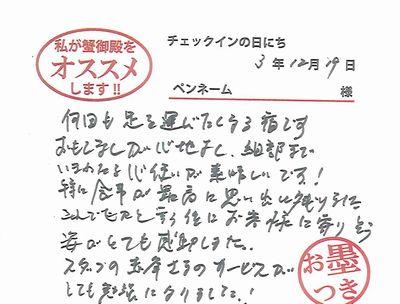 私が蟹御殿を
オススメ
します!!
チェックインの日にち
3年12月19日
ペンネーム
様
何回も足を運びたくなる宿です
おもてなしが心地よし、細部まで
心使いが素晴しいです!
特に食事が最高に思い出に残りました
お客様に寄り添う
姿がとても感動しました。
スタッフの サービスが
とても勉強になりました!
お墨つき